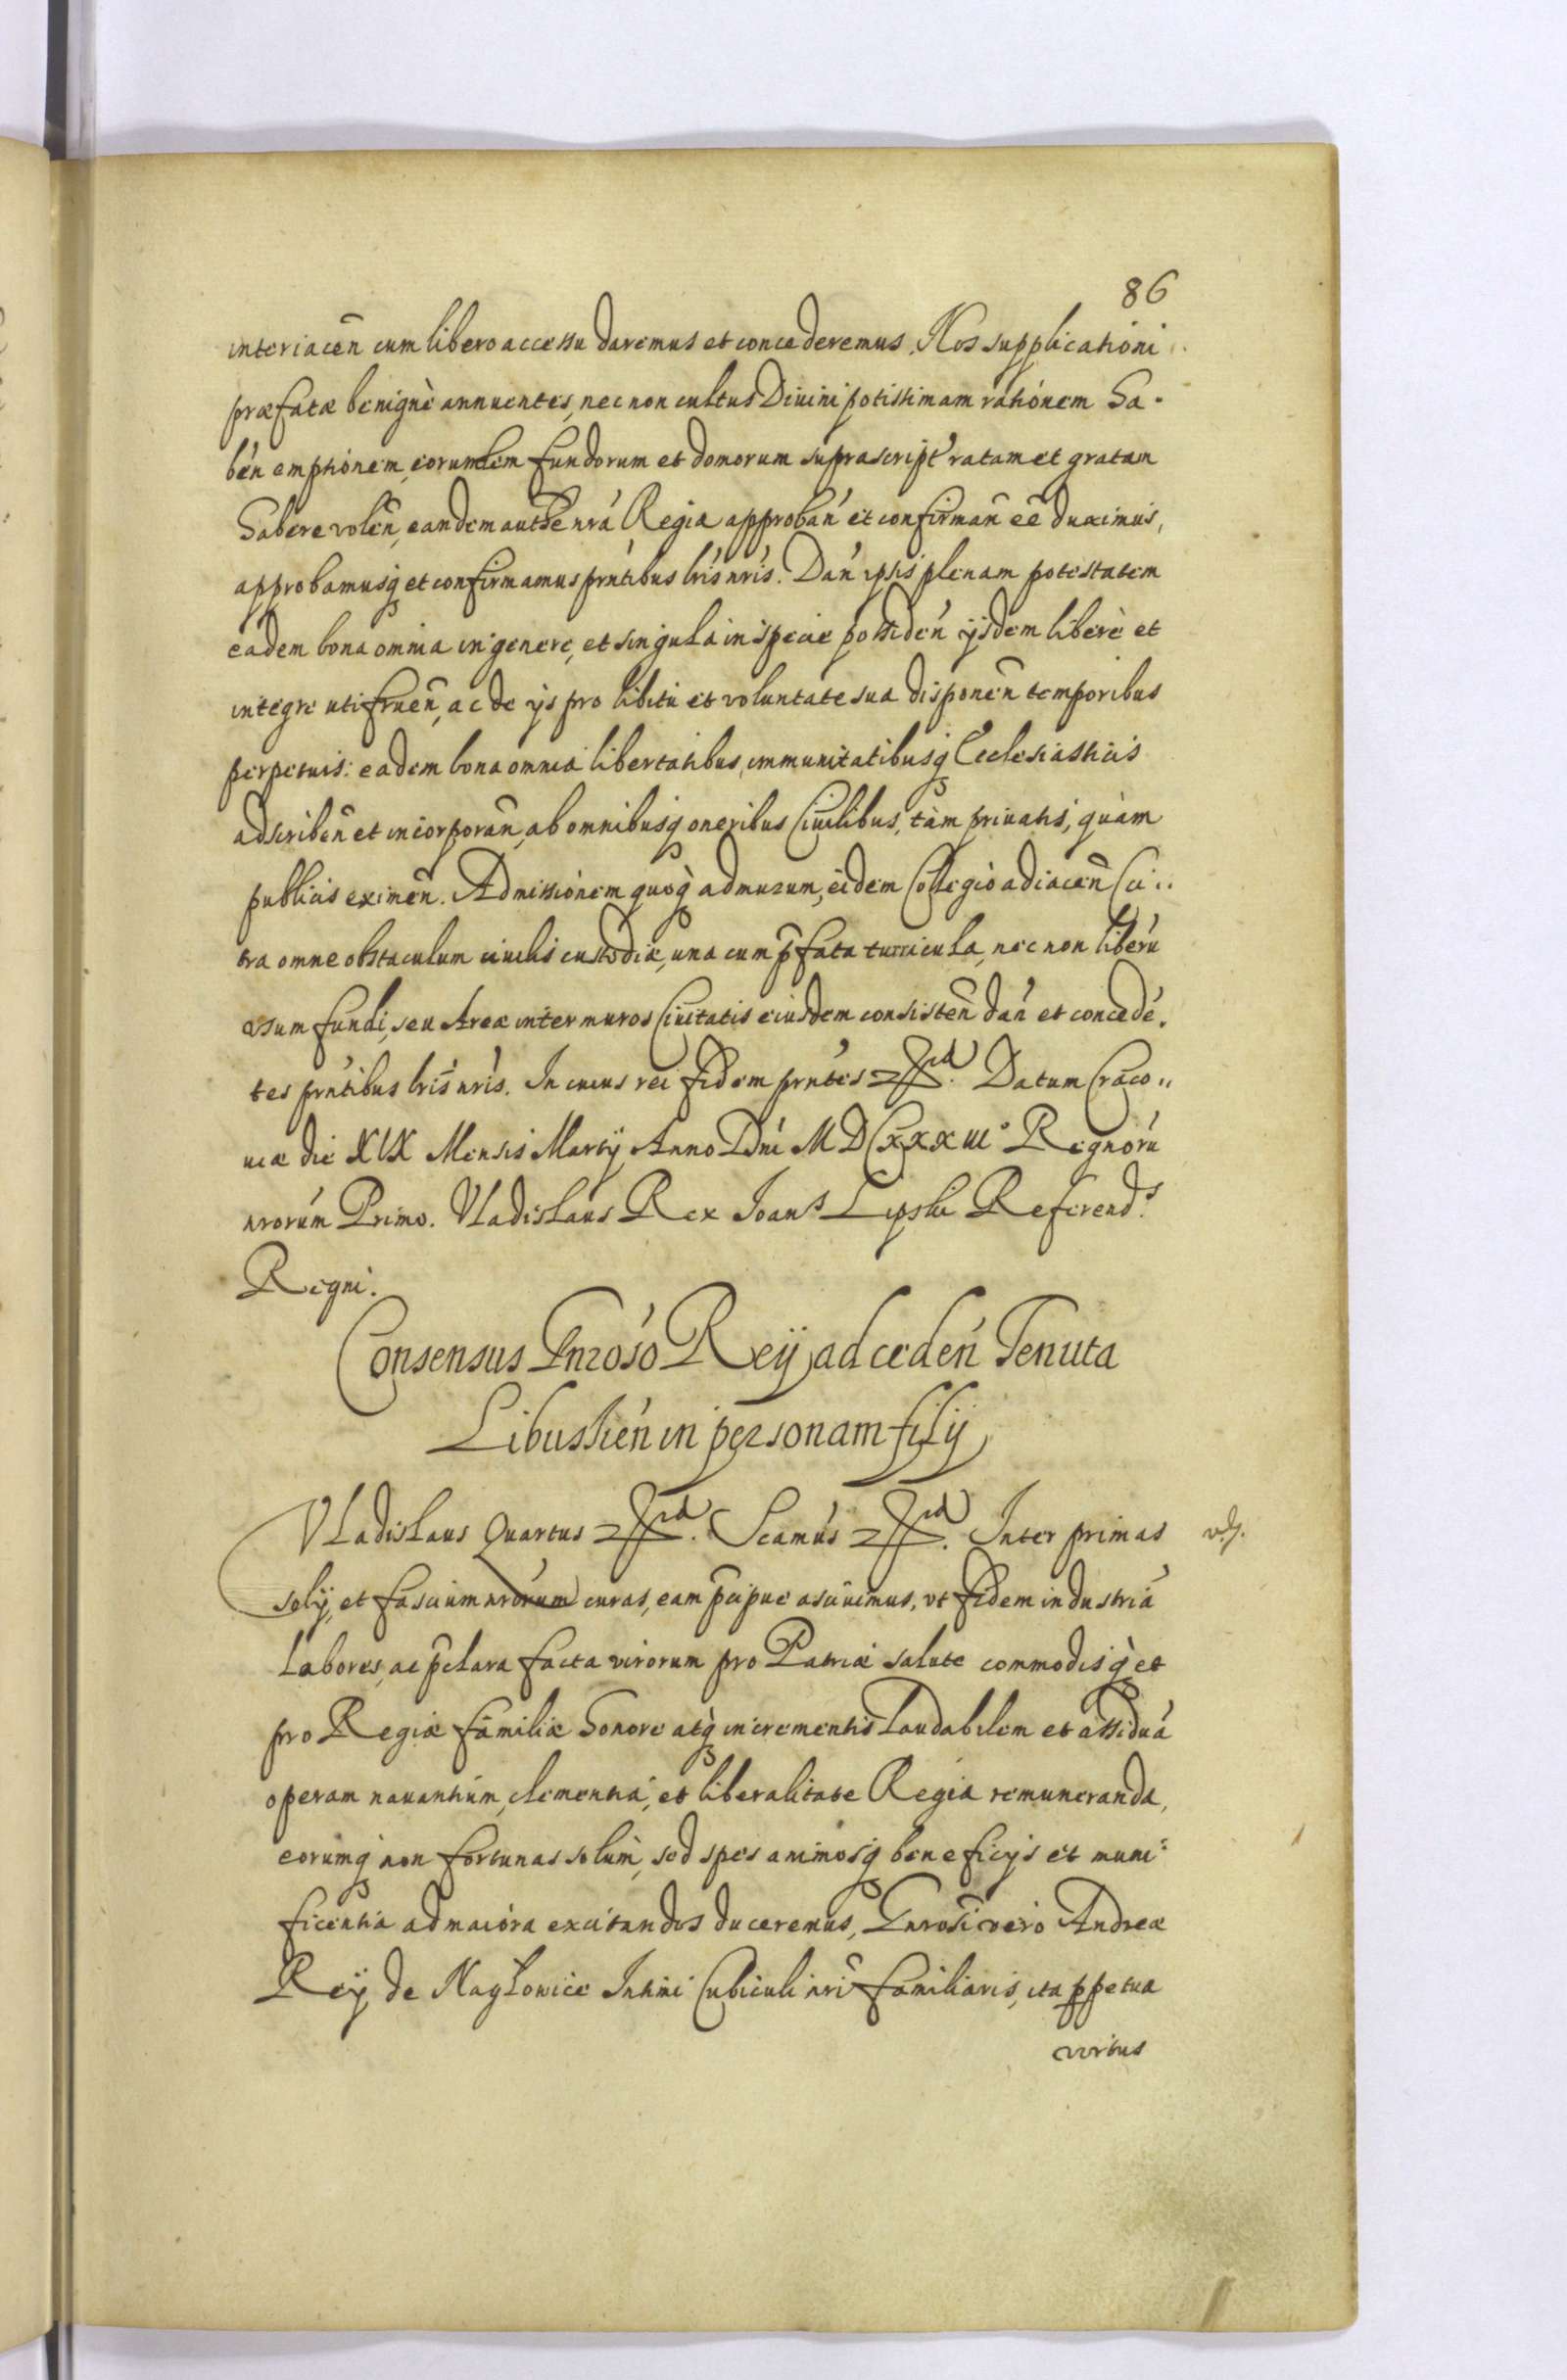 86
interiacen̄ cum libero accessu daremus et concederemus. Nos supplicationi
præfatæ benignè annuentes, nec non cultus Diuini potissimam rationem ha-
bén emptionem, eorumdem fundorum et domorum suprascript' ratam et gratam
habere volen̄, eandem authe nrá Regia approbań et confirman̄ eē duximus,
approbamusq̨ et confirmamus prńtibus lrīs nrīs. Dań ipsis plenam potestatem
eadem bona omnia in genere, et singula in specie possideń ijsdem liberè et
integre utifruen̄, ac de ijs pro libitu et voluntate sua disponen̄ temporibus
perpetuis: eadem bona omnia libertatibus, immunitatibusq̨ Ecclesiasticis
adscriben̄ et incorporan̄, ab omnibusq̨ oneribus Ciuilibus, tàm priuatis, quàm
publicis eximen̄. Admissionem quoq̨ ad murum, eidem Collegio adiacen̄ Ci"
tra omne obstaculum ciuilis custodiæ, una cum p̄fata turricula, nec non liberú
vsum fundi, seu Areæ inter muros Ciuitatis eiusdem consisten̄ dań et concedé.
tes prńtibus lrīs nrīs. In cuius rei fidem prńtes &c̃. Datum Craco"
uiæ die XIX Mensis Martij Anno Dńi MDCxxxiii° Regnorú
nrorúm Primo. Vladislaus Rex Joans Lipski Referend.s
Regni.
Consensus Gnróso Reÿ, ad cedeń Tenuta
Libuskień in personam filij
Vladislaus Quartus &c̃. Scamús &c̃. Inter primas
solij, et fascium nrorum curas, eam p̄cipue asciuimus, vt fidem industriá
labores, ac p̄clara facta virorum pro Patriæ salute commodisq̨ et
pro Regiæ familiæ honore atq̨ incrementis laudabilem et assiduá
operam nauantium, clementiá, et liberalitate Regia remuneranda,
eorumq̨ non fortunas solùm, sed spes animosq̨ beneficijs et muni-
ficentia ad maiora excitandos duceremus, Gnrosi vero Andreæ
Reÿ de Nagłowice Intimi Cubiculi nri Familiaris, ita ꝑpetua
virtus